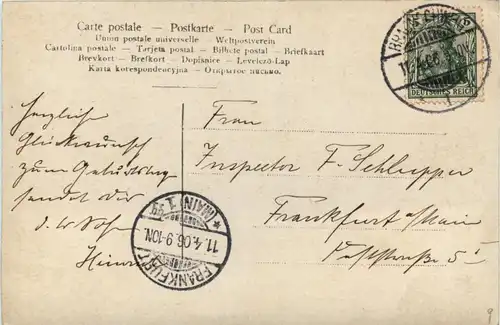 Carte postale — Postkarte — Post Card
Union postale universelle — Weltpostverein
Cartolina postale — Tarjeta postal — Bilhete postal — Briefkaart
Brevkort — Brefkort — Dopisnice — Levelező-Lap
Karta korespondencyjna — Открытое письмо.
DEUTSCHES REICH
Herzlichen
Glückwunsch
zum Geburtstag
sendet dir
Frau
Inspector F. Schlupper
Frankfurt a/Main
FRANKFURT (MAIN)
11.4.06. 9-10N.